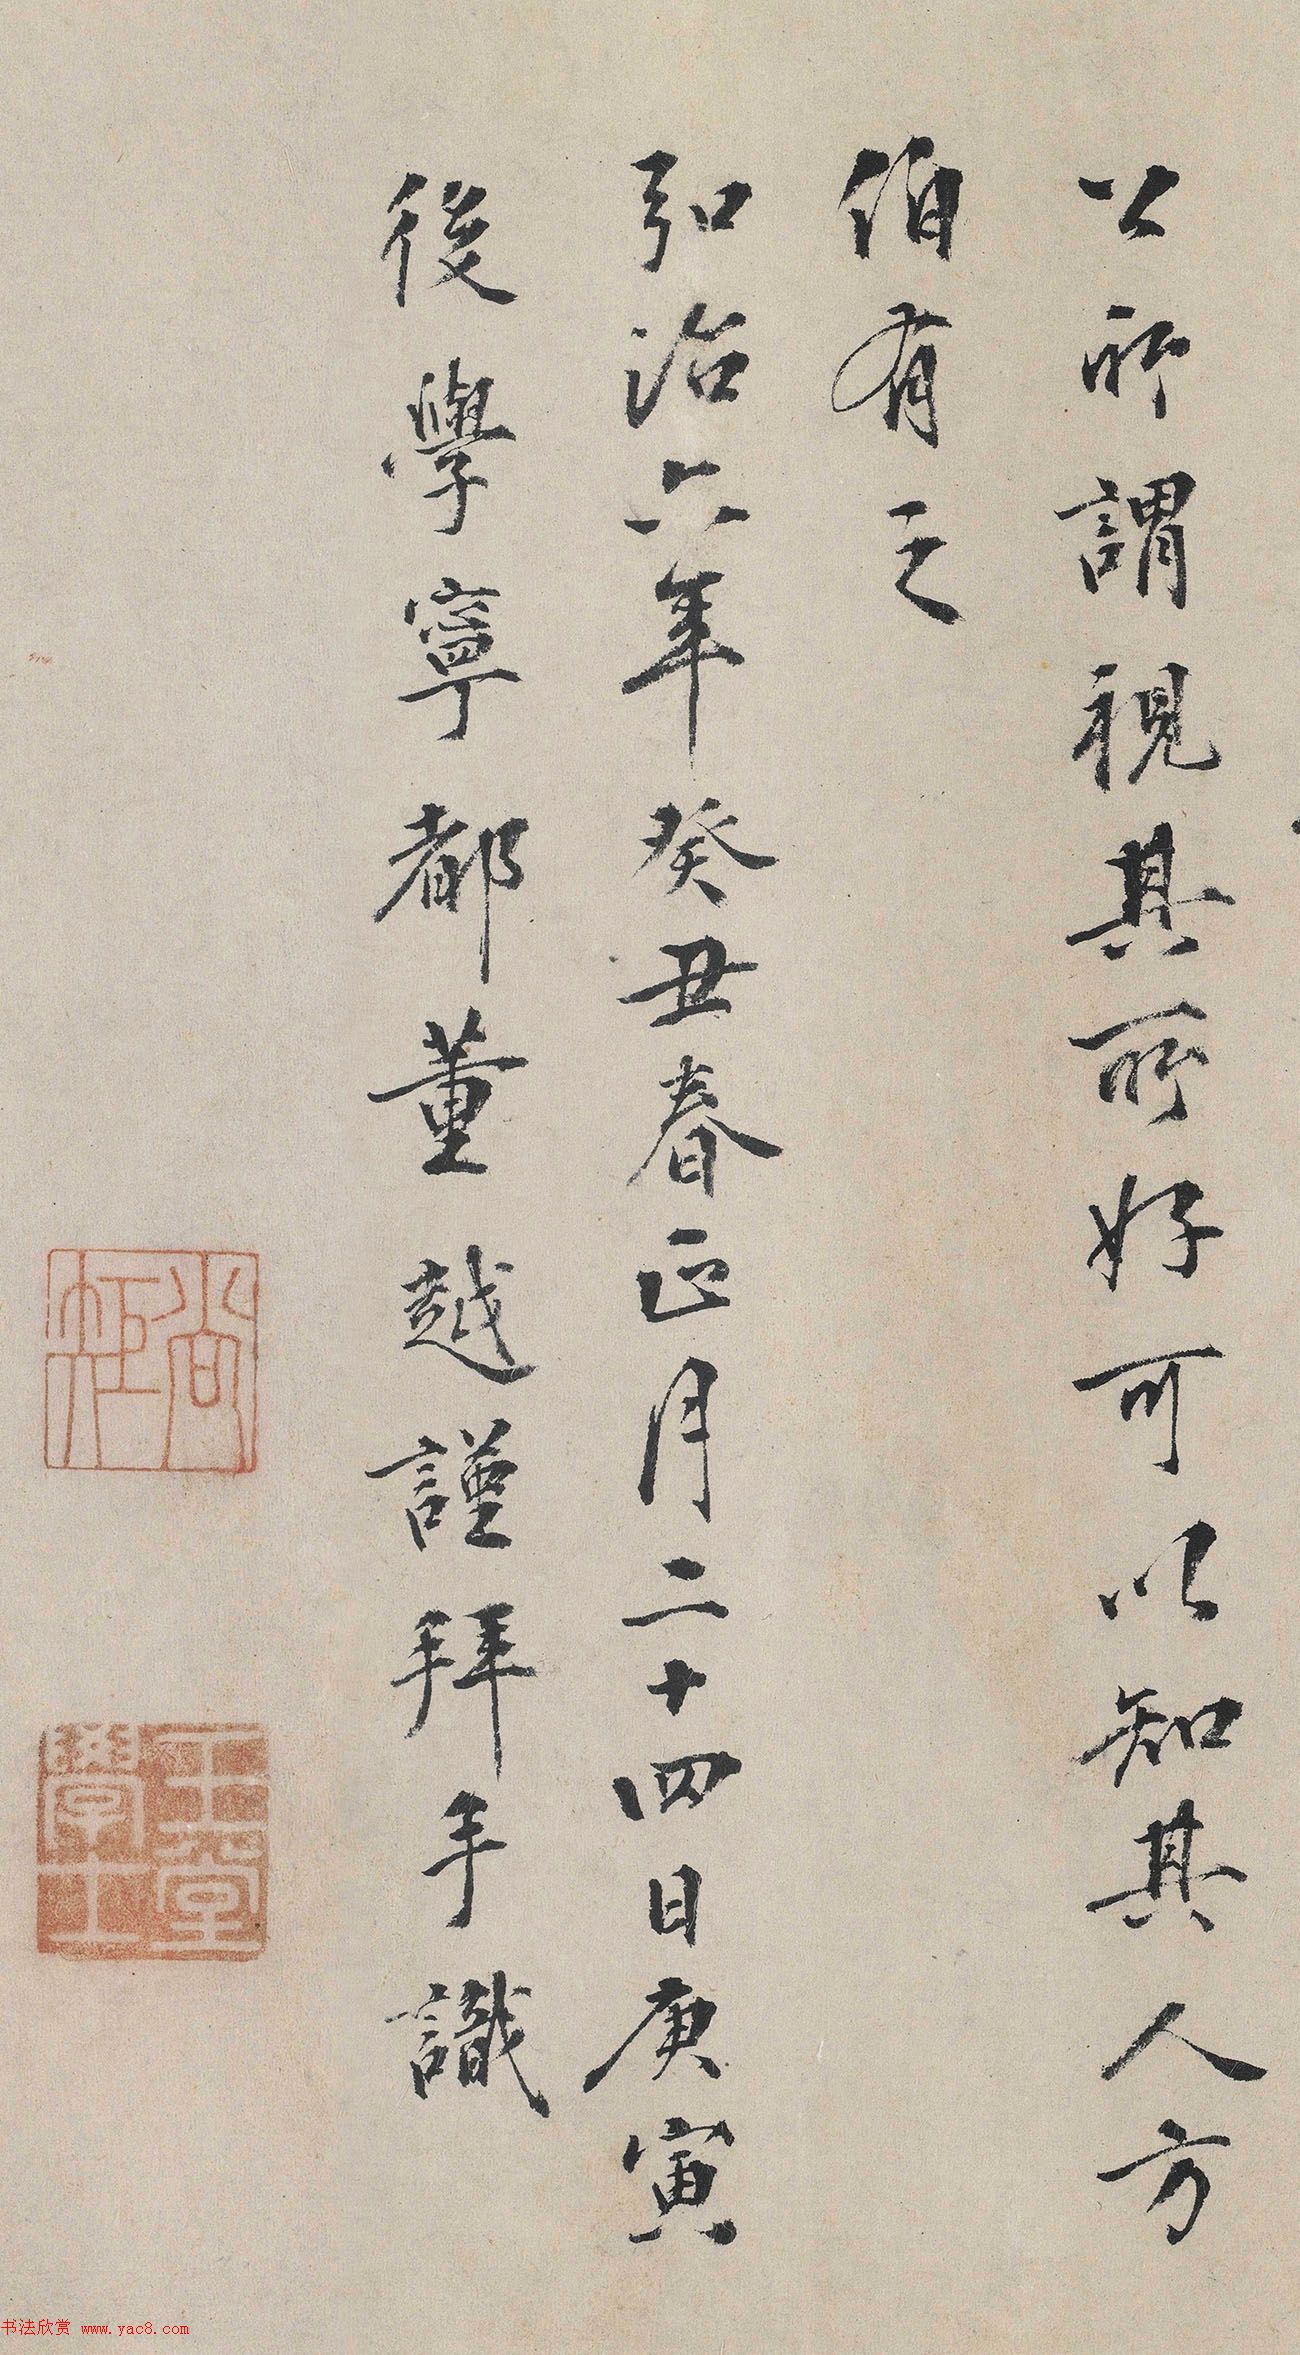 公所謂視其所好可以知其人方
伯有之
弘治六年癸丑春正月二十四日庚寅
後學寧都董越謹拜手識
尚矩
玉堂學士
书法欣赏 www.yac8.com